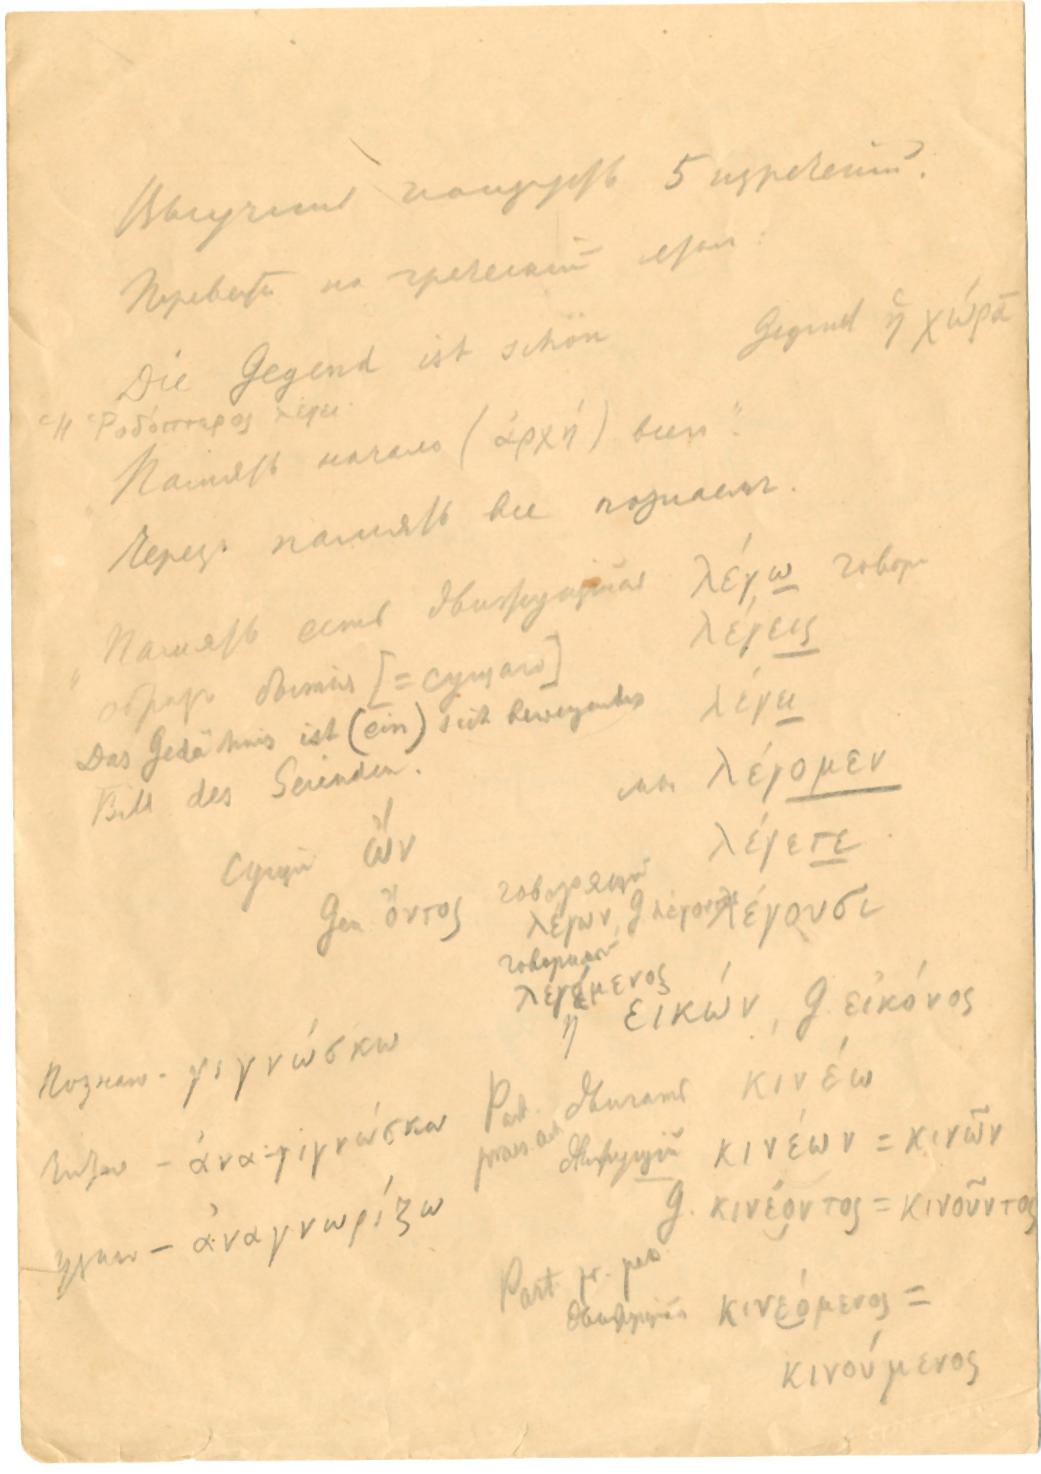 Выучить наизусть 5 изречений.
Перевести на греческий язык:
Die Gegend ist schön
Gegend ἡ χώρᾱ
Ἡ Ῥοδόπταρος λέγει.
Память начало (ἀρχή) всего".
Через память все познаем.
"Память есть движущийся
образ бытия [= сущаго]
Das Gedähnis ist (ein) sich bewegendes
Bild des Seienden.
λέγω говорю
λέγεις
λέγει
мы λέγομεν
λέγετε
λέγουσι
сущий ὤν
Gen ὄντος
говорящий
λέγων, G λέγοντος
говоримый
λεγόμενος
ἡ εἰκών, G. εἰκόνος
Познаю - γιγνώσκω
Узнаю - ἀνα-γιγνώσκω
Узнаю - ἀναγνωρίζω
двигать κινέω
Part. praes. act.
движущий κινέων = κινῶν
G. κινέοντος = κινοῦντος
Part. pr. med.
движущийся κινεόμενος =
κινούμενος